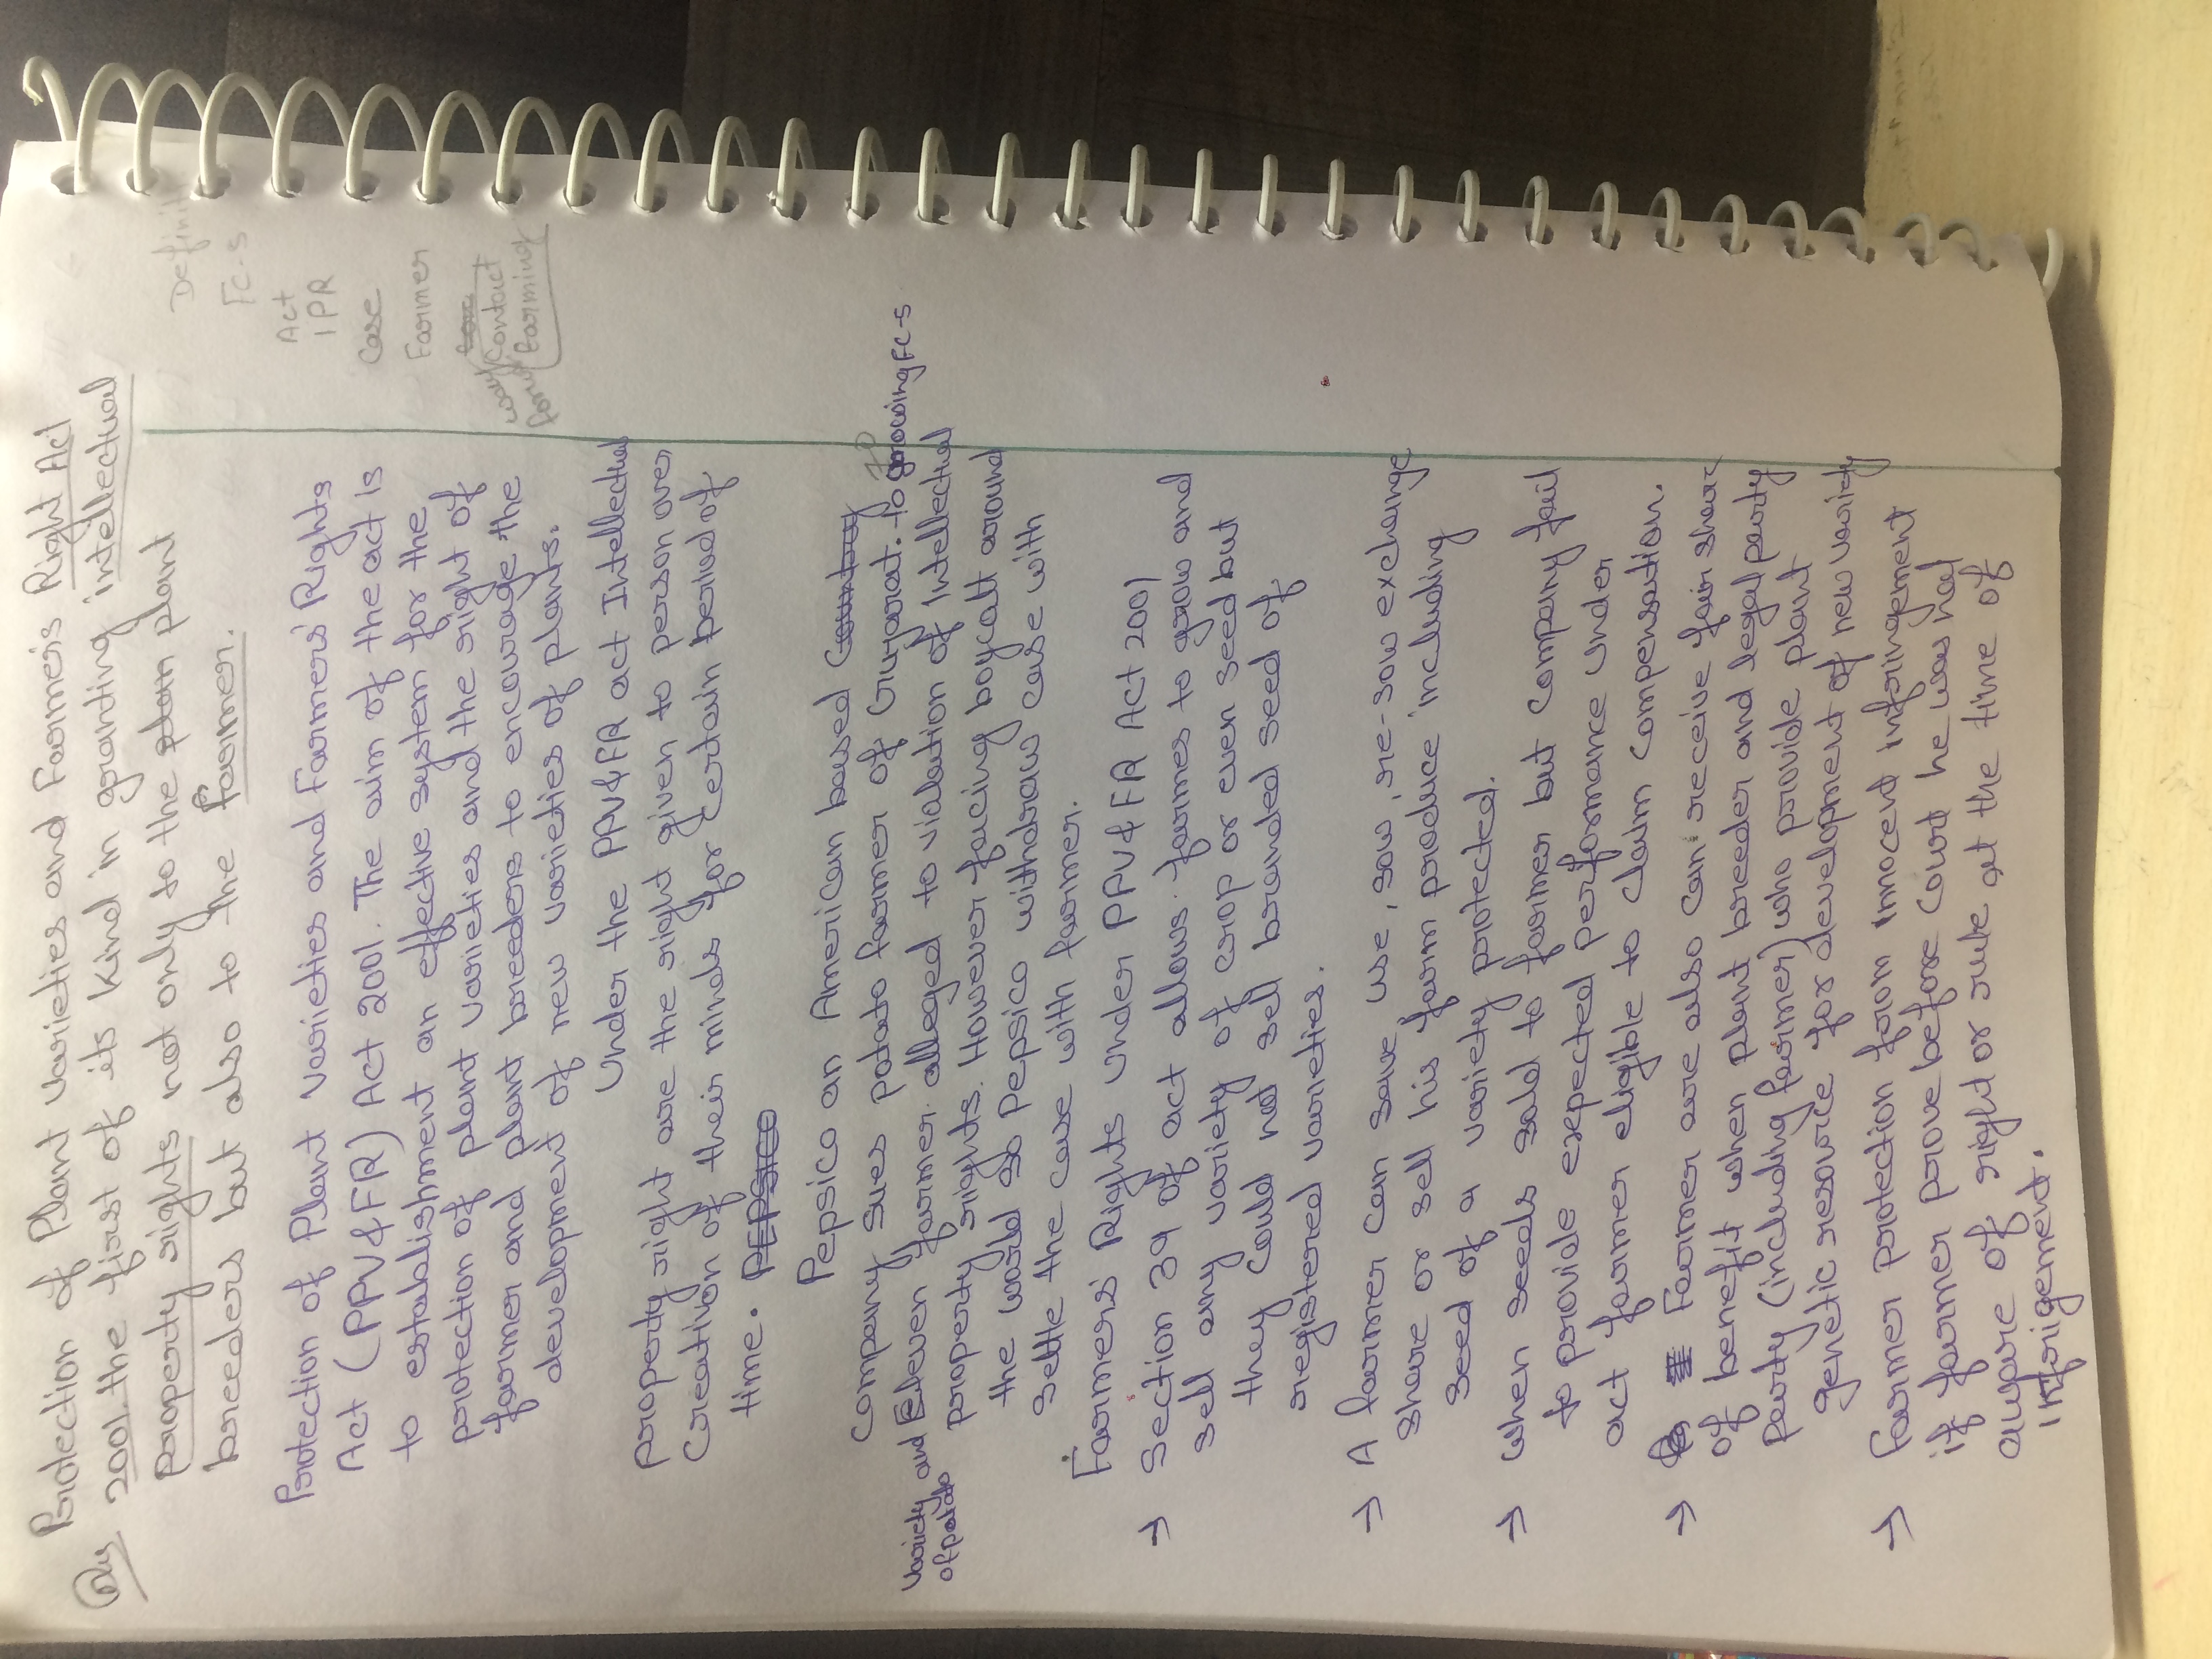 Qus Protection of Plant varieties and Farmer's Right Act
2001. the first of its kind in granting intellectual
property rights not only to the plan plant
breeders but also to the farmer.
Definit
FC-5
Act
IPR
Case
Farmer
way Contact
forw farming
Protection of Plant varieties and Farmer's Rights
Act (PPV&FR) Act 2001. The aim of the act is
to establishment an effective system for the
protection of plant varieties and the right of
farmer and plant breeders to encourage the
development of new varieties of plants.
Under the PPV&FR act Intellectual
property right are the right given to person over
creation of their minds for certain period of
time. PEPSICO
Pepsico an American based Country
company sues potato farmer of Gujarat. to growing FC-5
variety and Eleven farmer. alleged to violation of Intellectual
of potato property rights. However facing boycott around
the world so pepsico withdraw case with
settle the case with farmer.
Farmer's Rights under PPV&FR Act 2001
→ Section 39 of act allows farmes to grow and
sell any variety of crop or even seed but
they could not sell branded seed of
registered varieties.
→ A farmer can save use, sow, re-sow exchange
share or sell his farm produce including
seed of a variety protected.
→ when seeds sold to farmer but company fail
to provide expected performance under
act farmer eligible to claim compensation.
→ Farmer are also can receive fair share
of benefit when plant breeder and legal party
party (including farmer) who provide plant
genetic resource for development of new variety
→ Farmer protection from innocent infringement
if farmer prove before Court he was not
aware of right or rule at the time of
infrigement.